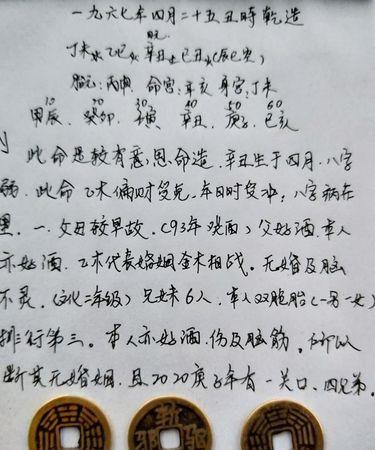 一九六七年四月二十五丑時乾造
丁未 乙巳 辛丑 己丑 (辰巳空)
胎元:丙申 命宫:辛亥 身宫:丁未
10 20 30 40 50 60
甲辰 癸卯 壬寅 辛丑 庚子 己亥
此命是较有意思命造,辛丑生于四月,八字
弱,此命乙木偏财受克,年日时受冲,八字病在
一、父母较早故,(93年 ) 父好酒,本人
亦好酒,乙木代表婚姻金木相战,无婚及脑
不灵,(文化二年级) 兄妹6人,本人双胞胎(一男一女)
排行第三,本人亦好酒,伤及脑筋,所以
断其无婚姻,且2020庚子年有一关口,四兄弟.